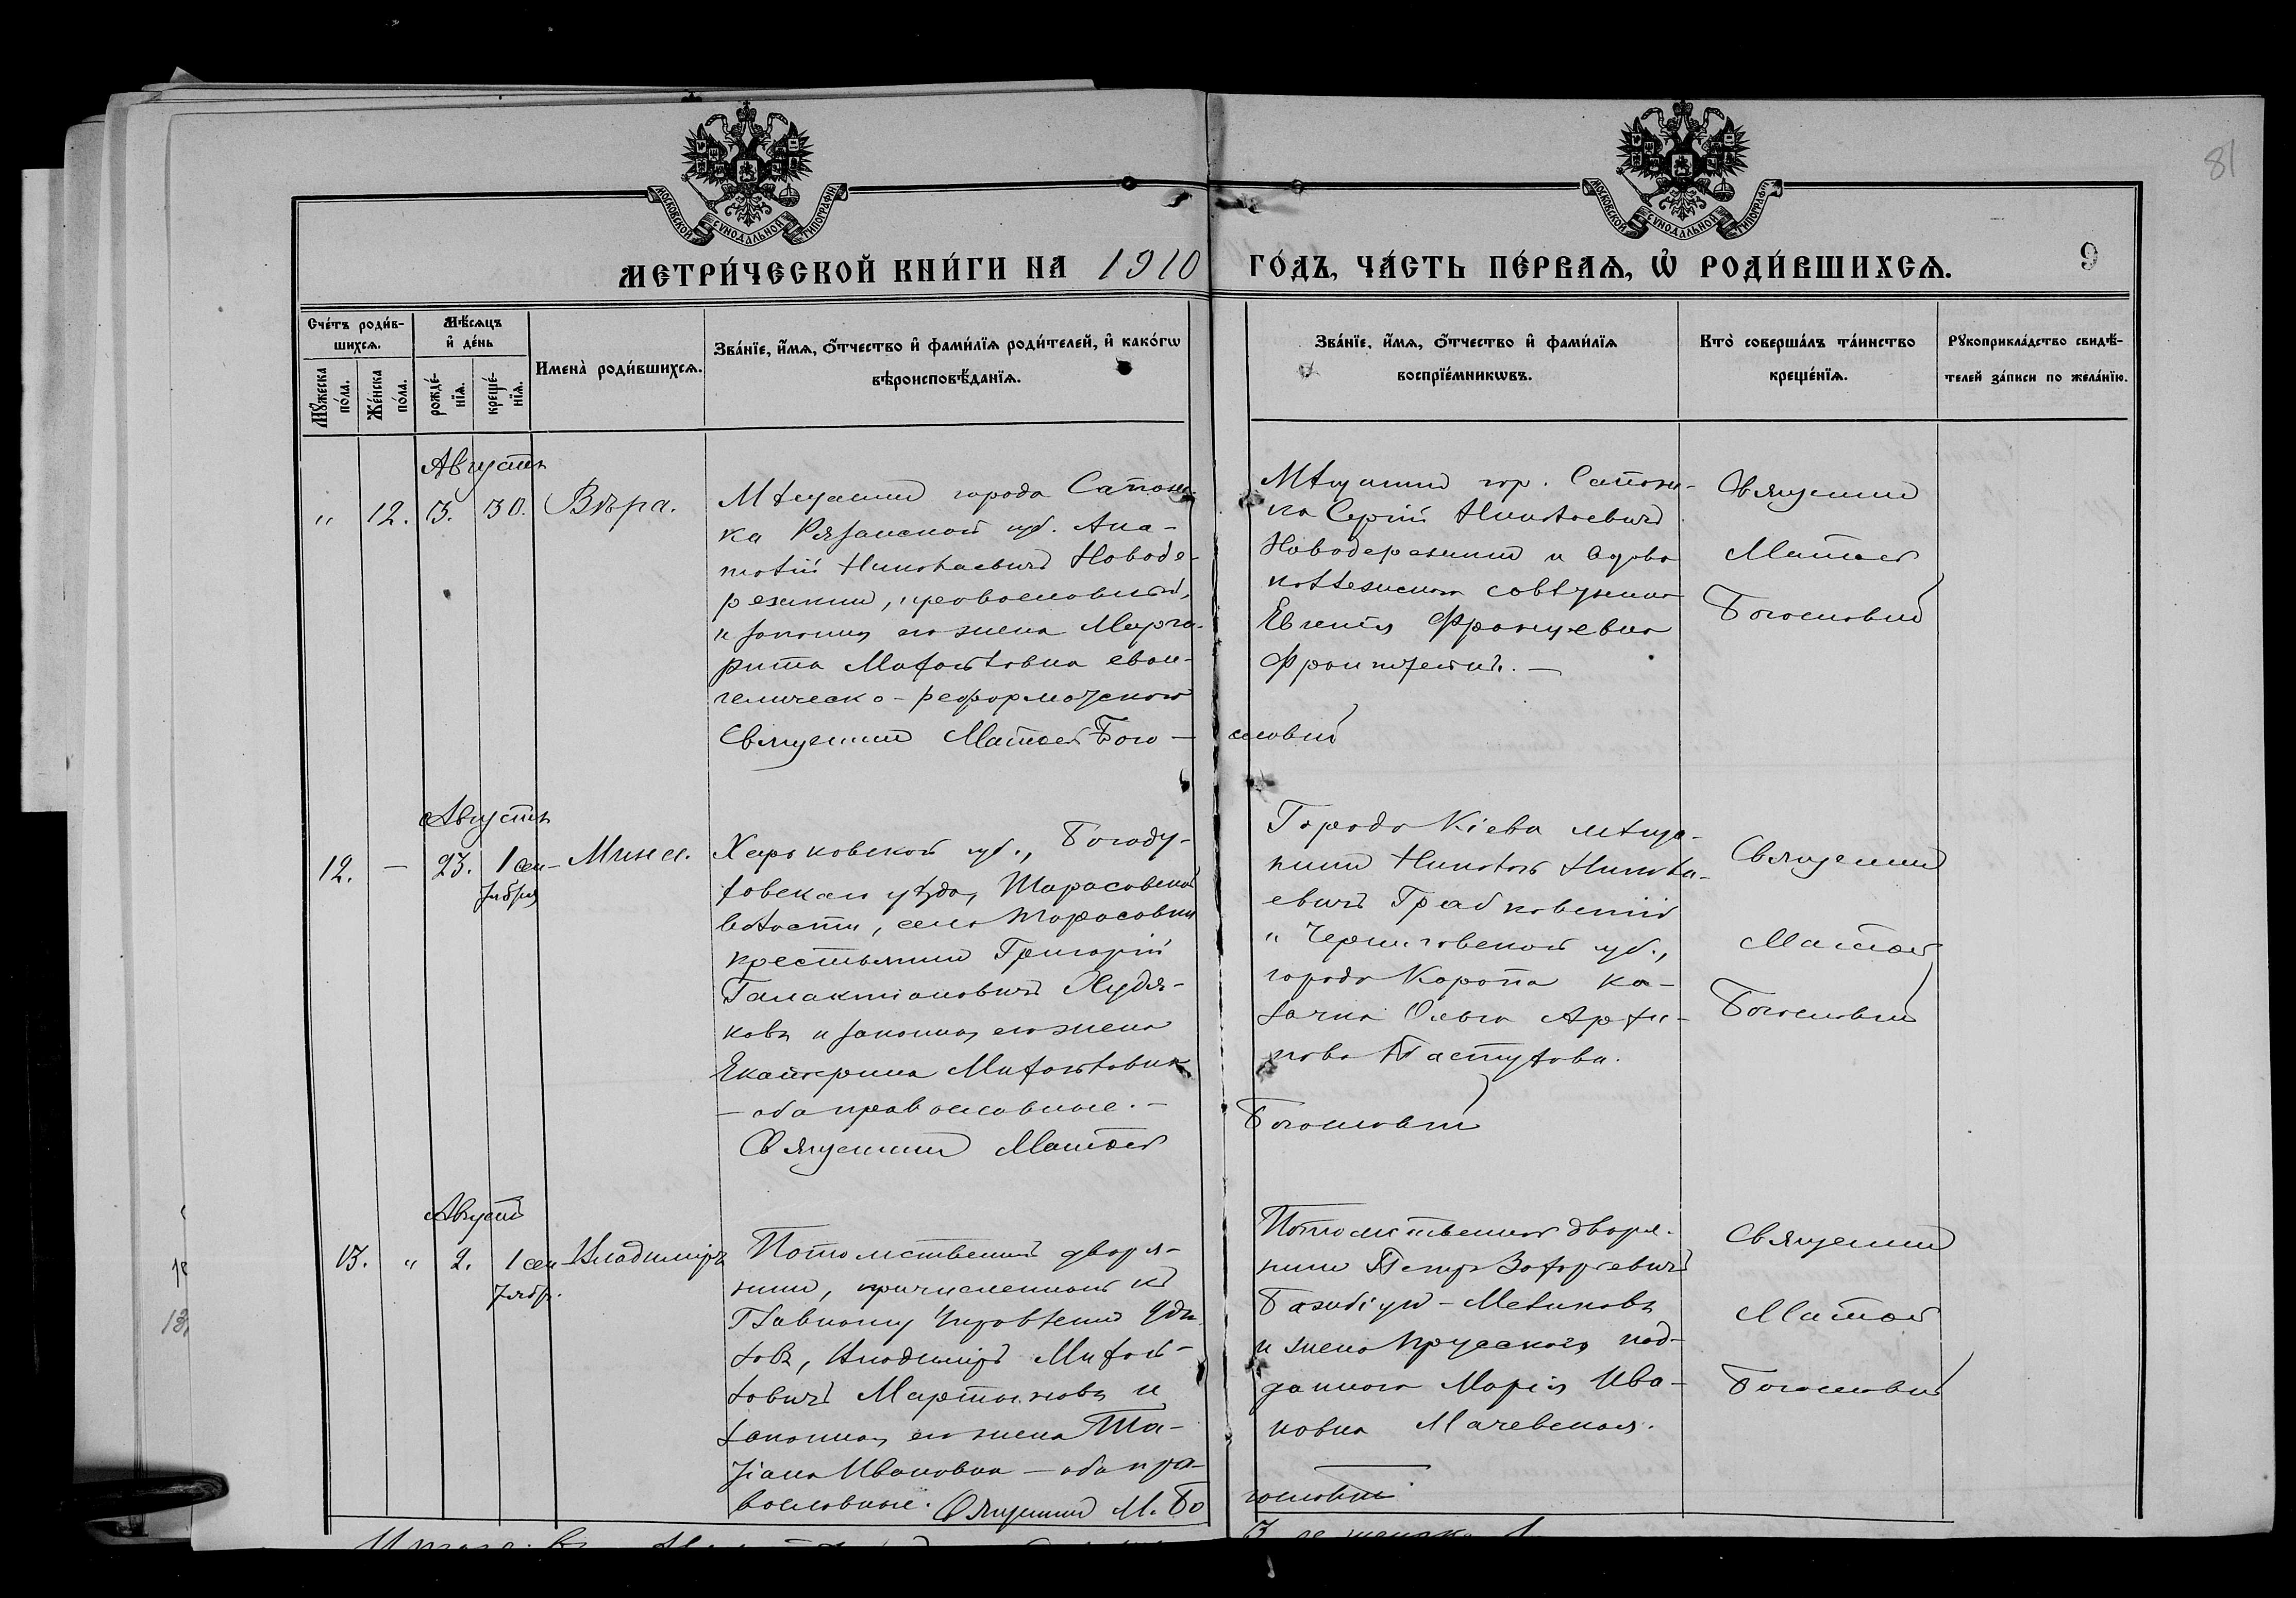 81
МОСКОВСКОЙ СѴНОДАЛЬНОЙ ТИПОГРАФІИ
МОСКОВСКОЙ СѴНОДАЛЬНОЙ ТИПОГРАФІИ
МЕТРИ́ЧЕСКОЙ КНИ́ГИ НА 1910 ГО́ДЪ, ЧА́СТЬ ПЕ́РВАѦ, Ѡ҆ РОДИ́ВШИХСѦ. 9
Сче́тъ роди́в-
шихсѧ.
Мꙋ́жеска по́ла.
Же́нска по́ла.
Мѣ́сѧцъ
и҆ де́нь
рожде́-
нїѧ.
креще́-
нїѧ.
Имена̀ роди́вшихсѧ.
Зва́нїе, и҆́мѧ, ѻ҆́тчество и҆ фами́лїѧ роди́телей, и҆ како́гѡ
вѣроисповѣ́данїѧ.
Зва́нїе, и҆́мѧ, ѻ҆́тчество и҆ фами́лїѧ
воспрїе́мникѡвъ.
Кто̀ соверша́лъ та́инство
креще́нїѧ.
Рꙋкоприкла́дство свидѣ́-
телей за́писи по жела́нїю.
Августъ
" 12. 13. 30. Вѣра.
Мѣщанинъ города Сапож-
ка Рязанской губ. Ана-
толій Николаевичъ Новоде-
режкинъ, православный,
и законная его жена Марга-
рита Михайловна еван-
гелическо-реформатскаго
Священникъ Матвей Бого-
словскій
Мѣщанинъ гор. Сапож-
ка Сергій Николаевичъ
Новодережкинъ и вдова
коллежскаго совѣтника
Евгенія Францевна
Священникъ
Матвей
Богословскій
Августъ
12. — 23. 1 сен-
тября
Мина.
Харьковской губ., Богоду-
ховскаго уѣзда, Тарасовской
волости, села Тарасовки
крестьянинъ Григорій
Галактіоновичъ Худя-
ковъ и законная его жена
Екатерина Михайловна
— оба православные. —
Священникъ Матвей
Богословскій
Города Кіева мѣща-
нинъ Николай Никола-
евичъ Грабковскій
и Черниговской губ.,
города Коропа ка-
зачка Ольга
Пастухова.
Священникъ
Матвей
Богословскій
Августъ
13. " 2. 1 сен-
тябр.
Владиміръ
Потомственный дворя-
нинъ, причисленный къ
Главному Управленію Удѣ-
ловъ, Владиміръ Михай-
ловичъ Мартыновъ и
законная его жена Та-
тіана Ивановна — оба пра-
вославные. Священникъ М. Бо
гословскій
Потомственный дворя-
нинъ Петръ Захарьевичъ
Меликовъ
и жена прусскаго под-
даннаго Марія Ива-
новна Мачевская.
Священникъ
Матвей
Богословскій